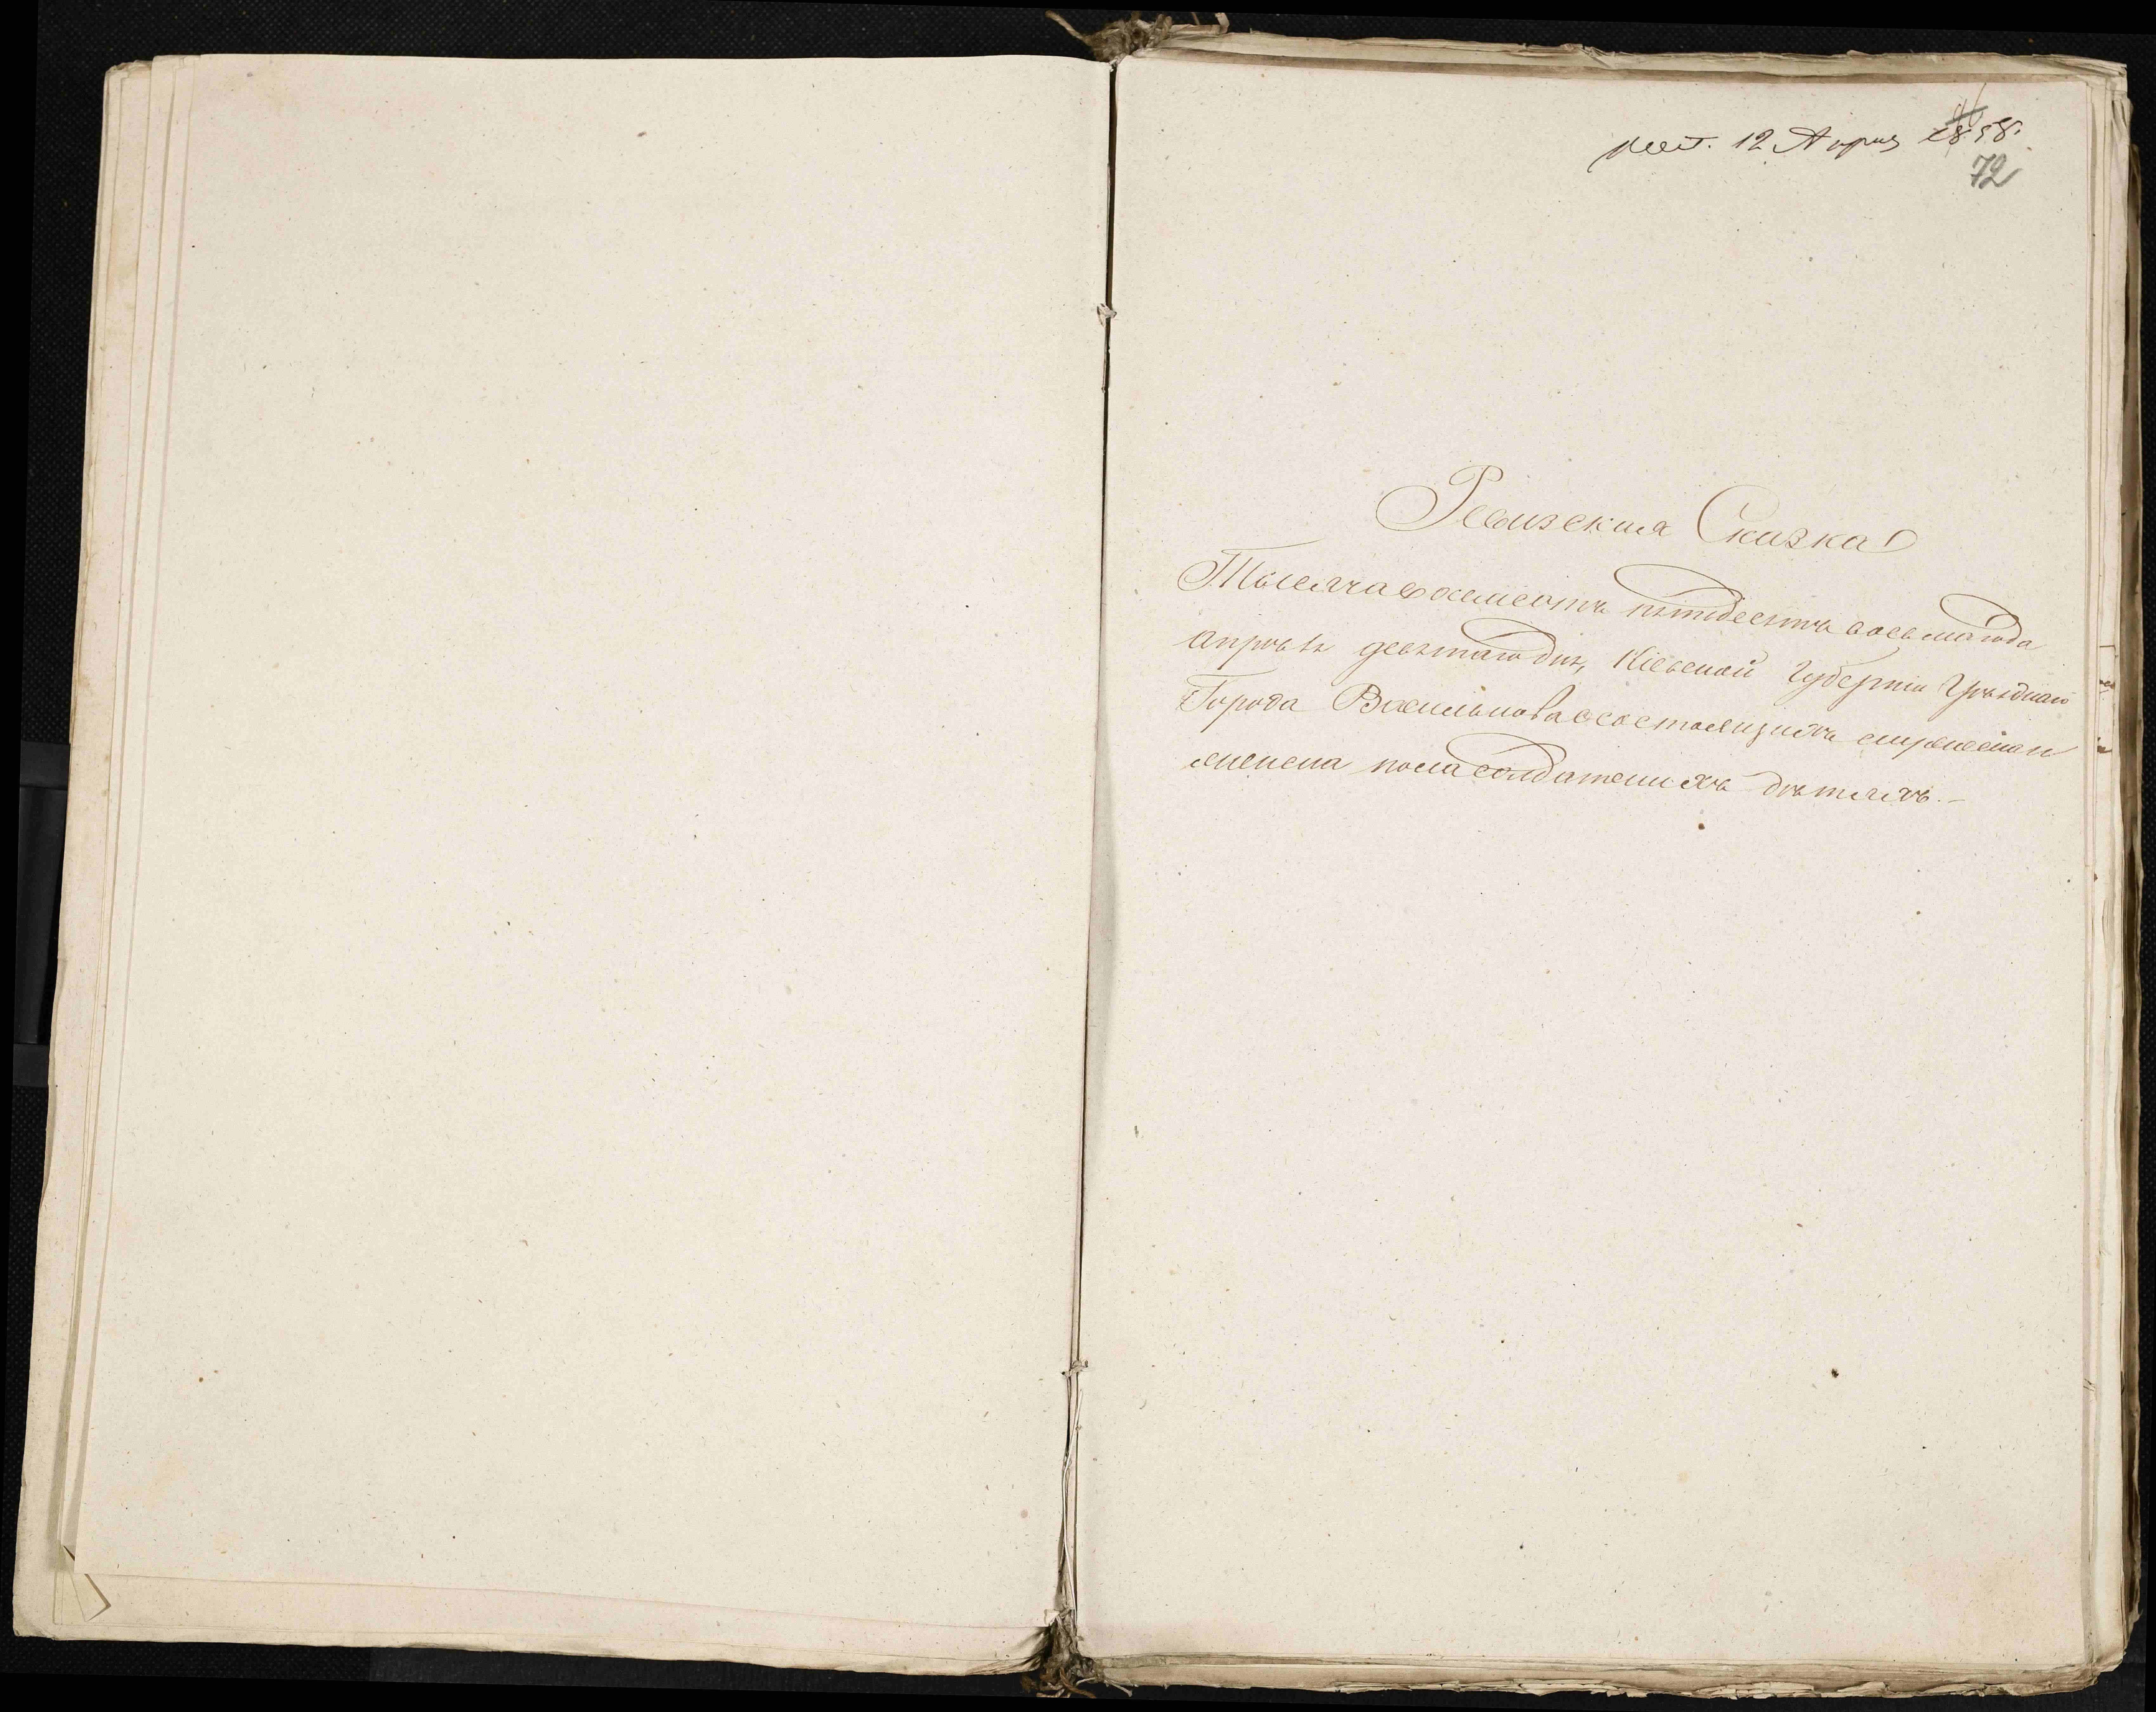 12 Апрля 1858.
72
Ревизская Сказка
Тысяча восемсотъ пятдесятъ восьмагода
Апрѣля девятагодня, Кіевской Губерніи Уѣзднаго
Города Василькова о состоящихъ мужеска и
женска пола солдатскихъ дѣтяхъ.–